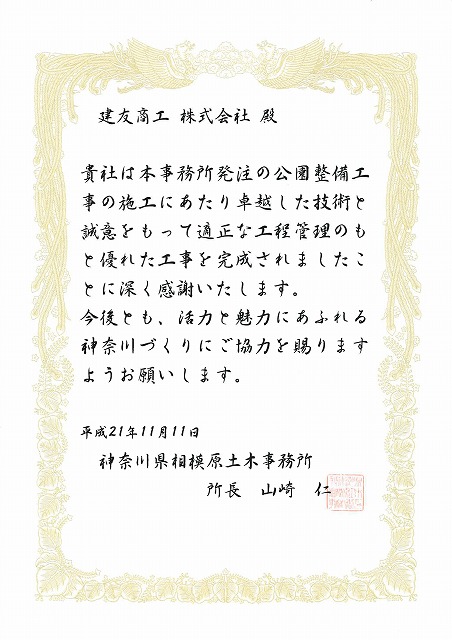 建友商工 株式会社 殿
貴社は本事務所発注の公園整備工
事の施工にあたり卓越した技術と
誠意をもって適正な工程管理のも
と優れた工事を完成されましたこ
とに深く感謝いたします。
今後とも、活力と魅力にあふれる
神奈川づくりにご協力を賜ります
ようお願いします。
平成21年11月11日
神奈川県相模原土木事務所
所長 山崎 仁